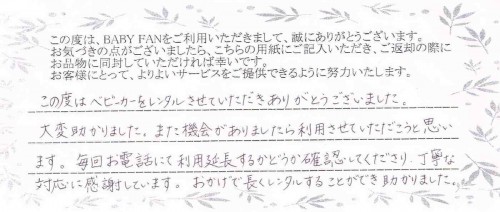 この度は、BABY FANをご利用いただきまして、誠にありがとうございます。
お気づきの点がございましたら、こちらの用紙にご記入いただき、ご返却の際に
お品物に同封していただければ幸いです。
お客様にとって、よりよいサービスをご提供できるように努力いたします。
この度はベビーカーをレンタルさせていただきありがとうございました。
大変助かりました。また機会がありましたら利用させていただこうと思い
ます。毎回お電話にて利用延長するかどうか確認してくださり、丁寧な
対応に感謝しています。おかげで長くレンタルすることができ助かりました。